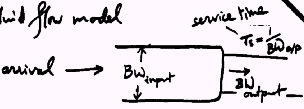 fluid flow model
service time
Ts = 1/BW o/p
arrival → BW input
BW output